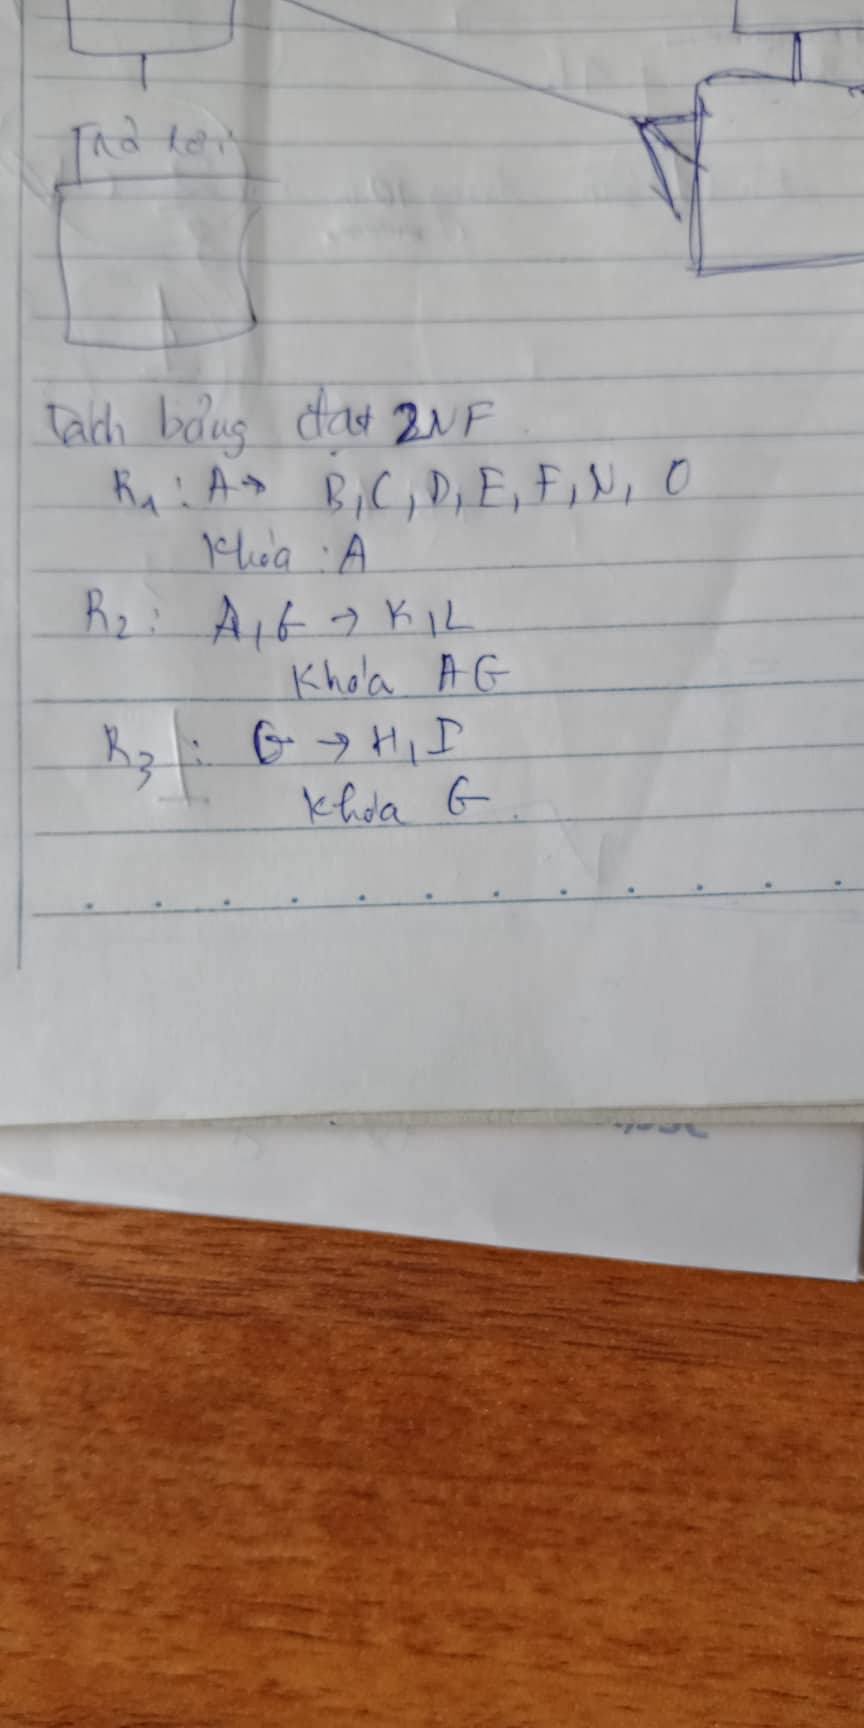 Trả lời
Tách bảng đạt 2NF
R1: A → B, C, D, E, F, N, O
Khóa: A
R2: A, G → K, L
Khóa AG
R3: G → H, I
Khóa G